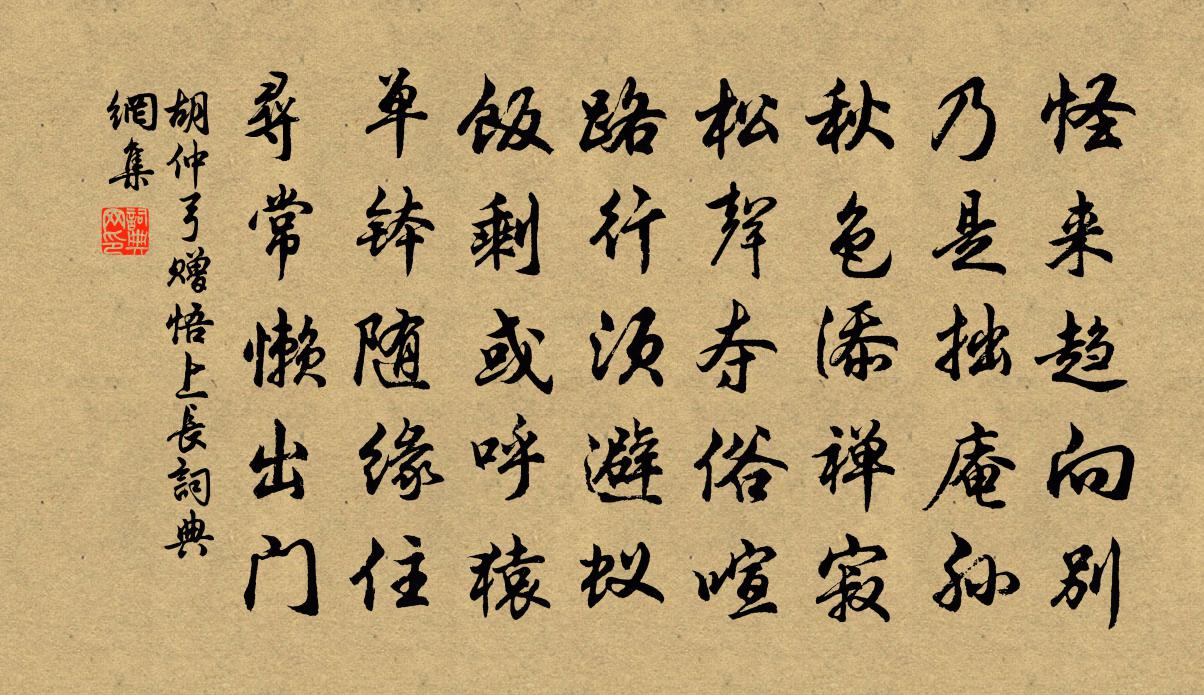 怪来趋向别
乃是拙庵孙
秋色添禅寂
松聲夺俗喧
路行须避蚁
飯剩或呼猿
单钵随缘住
尋常懒出门
胡仲弓赠悟上長詞典
網集
詞典
网印